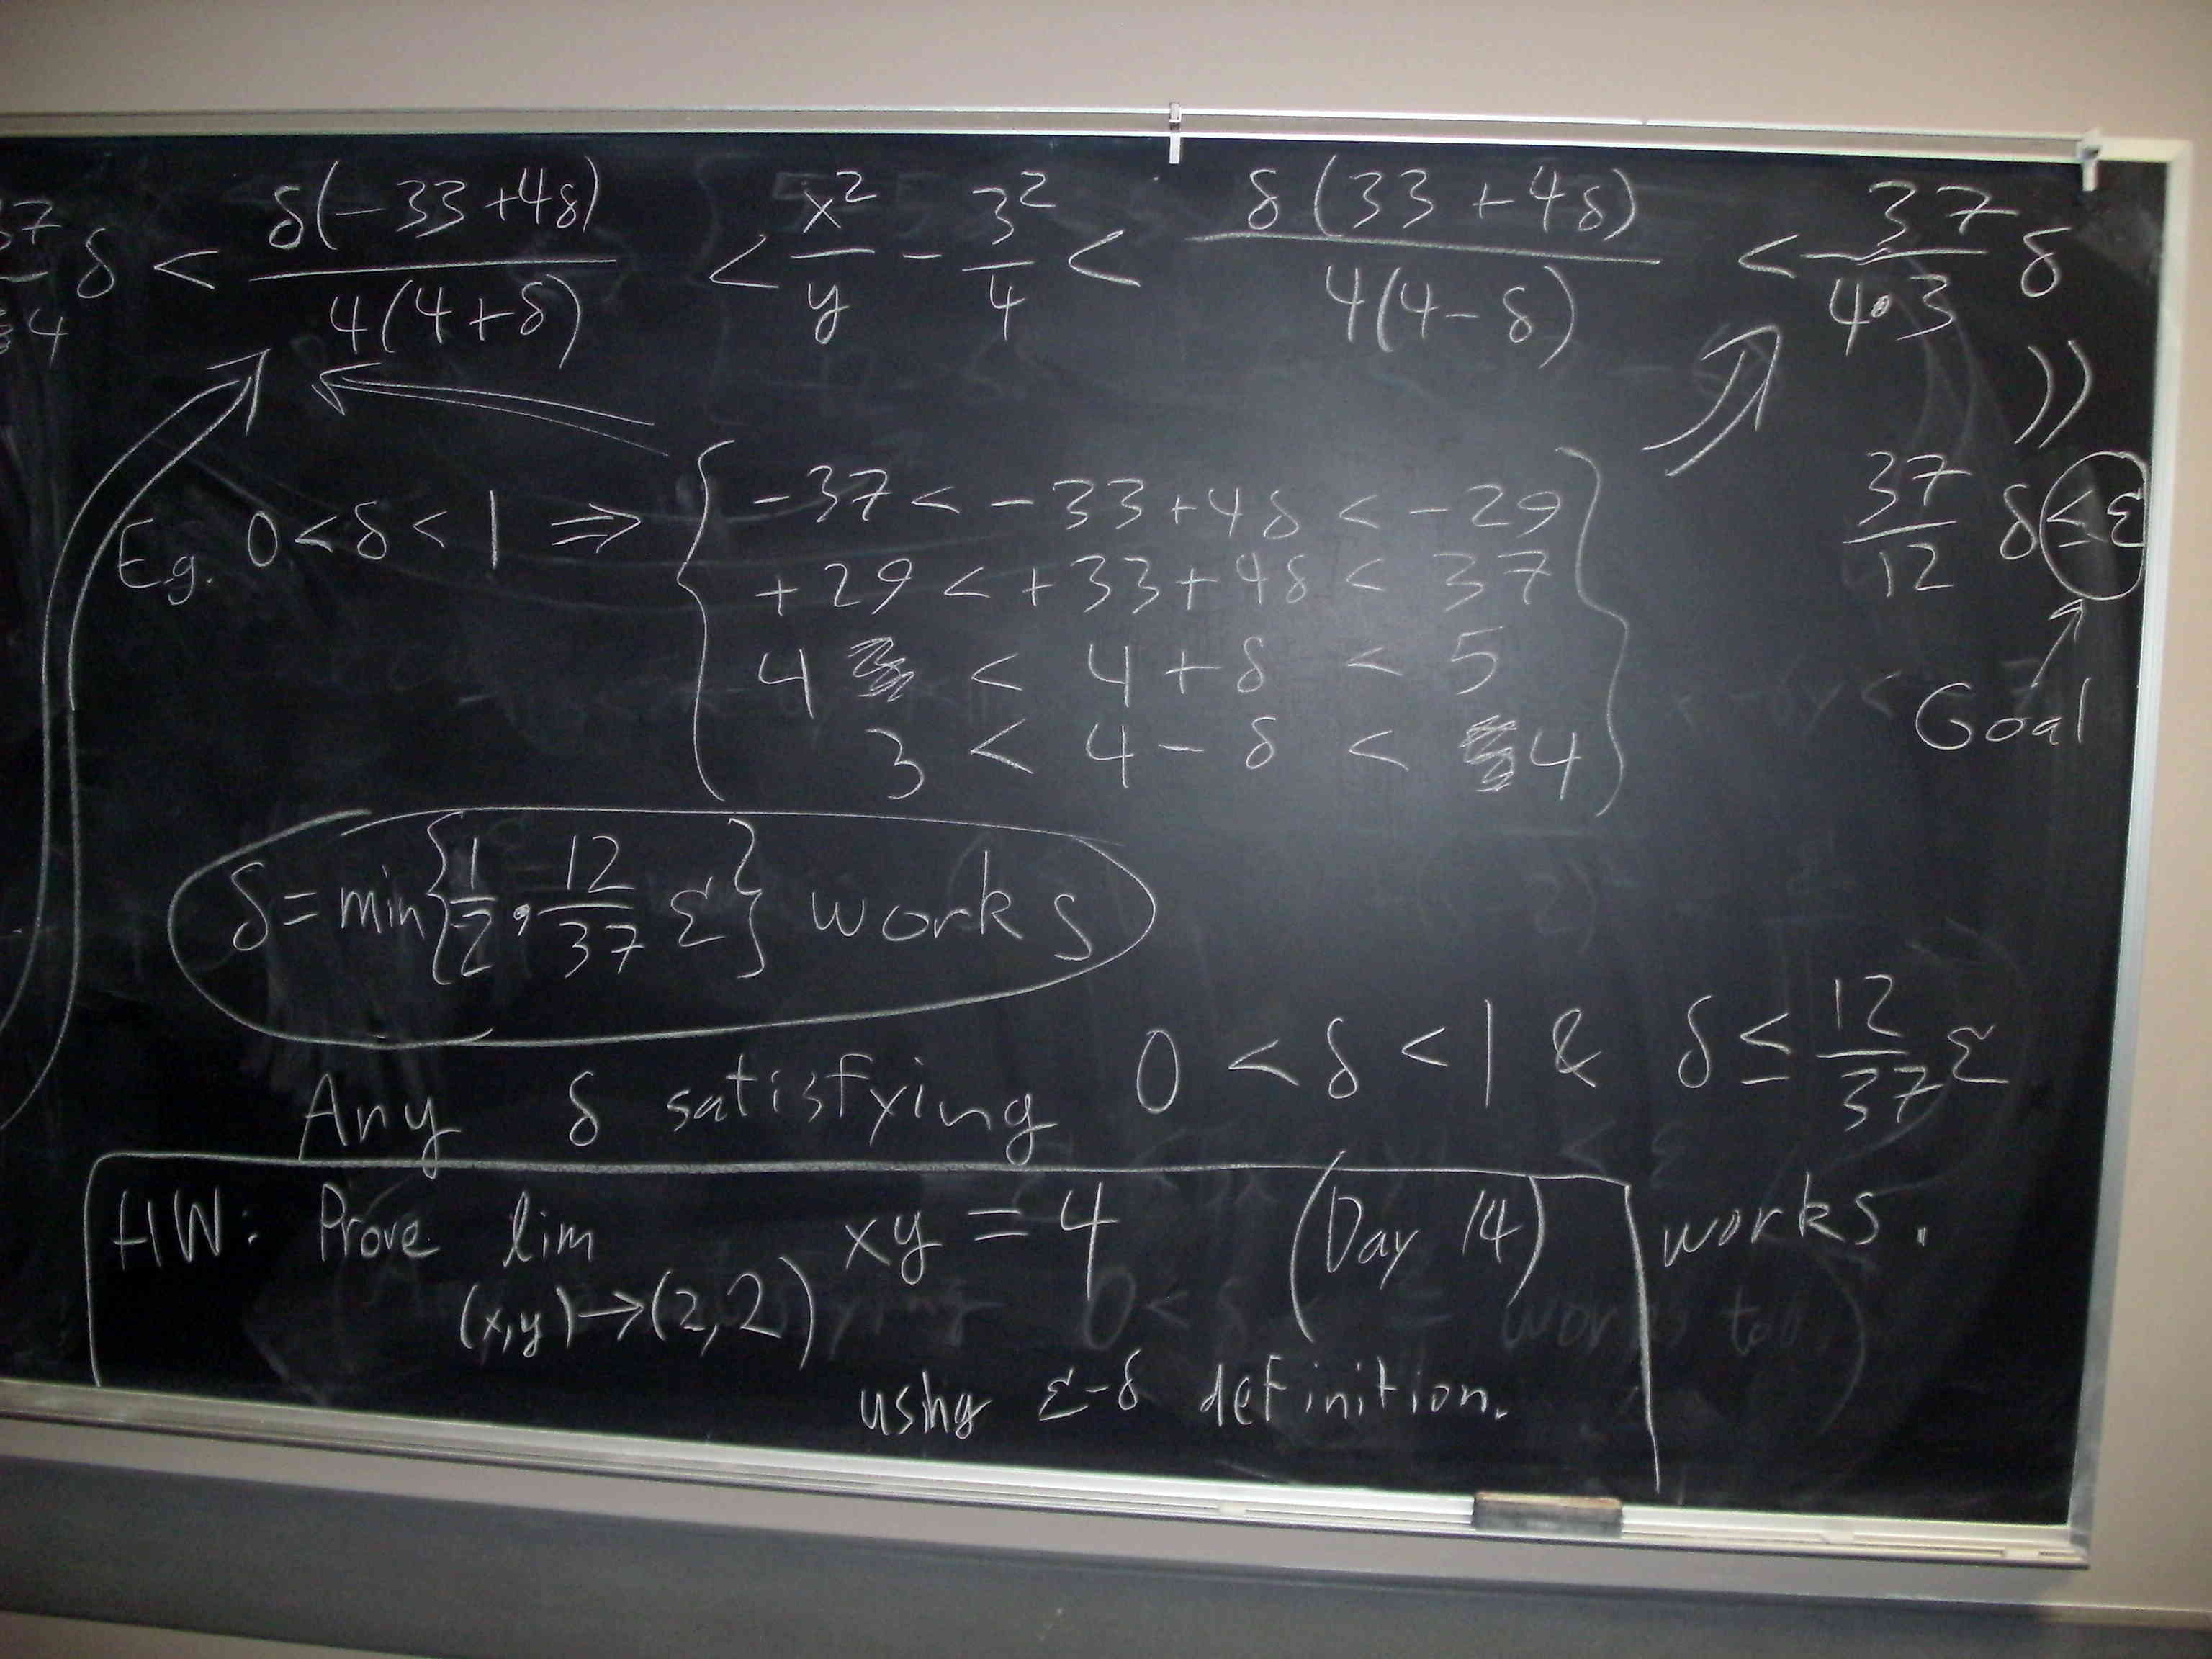 37/4 δ < δ(-33+4δ)/4(4+δ) < x²/y - 3²/4 < δ(33+4δ)/4(4-δ) < 37/4·3 δ
E.g. 0<δ<1 ⇒ { -37 < -33+4δ < -29
+29 < +33+4δ < 37
4 < 4+δ < 5
3 < 4-δ < 4 }
37/12 δ ≤ ε
Goal
δ = min{1/2, 12/37 ε} works
Any δ satisfying 0 < δ < 1 & δ ≤ 12/37 ε
works.
HW: Prove lim (x,y)→(2,2) xy = 4 (Day 14)
using ε-δ definition.